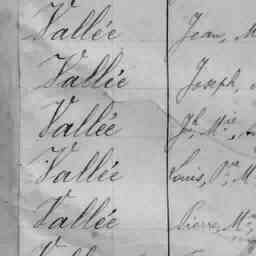 Vallée Jean, M
Vallée Joseph,
Vallée Jh, Mie,
Vallée Louis, Pre M
Vallée Pierre, M